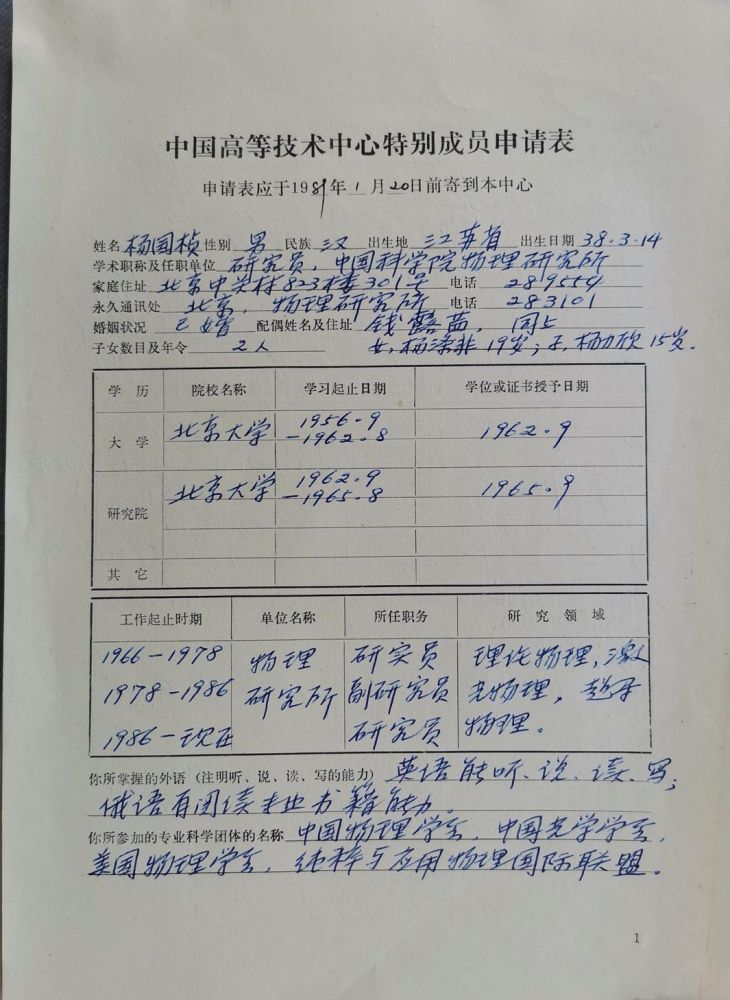 中国高等技术中心特别成员申请表
申请表应于1989年1月20日前寄到本中心
姓名 杨国桢 性别 男 民族 汉 出生地 江苏省 出生日期 38.3.14
学术职称及任职单位 研究员,中国科学院物理研究所
家庭住址 北京中关村823楼301号 电话 289554
永久通讯处 北京,物理研究所 电话 283101
婚姻状况 已婚 配偶姓名及住址 钱露茜,同上
子女数目及年令 2人 女,杨 非19岁;子,杨 欣15岁.
学历 院校名称 学习起止日期 学位或证书授予日期
大学 北京大学 1956.9 -1962.8 1962.9
研究院 北京大学 1962.9 -1965.8 1965.9
其它
工作起止时期 单位名称 所任职务 研究领域
1966-1978 物理 研实员 理论物理,激
1978-1986 研究所 副研究员 光物理,超导
1986-现在 研究员 物理。
你所掌握的外语(注明听、说、读、写的能力) 英语能听、说、读、写;
俄语有阅读专业书籍能力。
你所参加的专业科学团体的名称 中国物理学会,中国光学学会,
美国物理学会,纯粹与应用物理国际联盟。
1